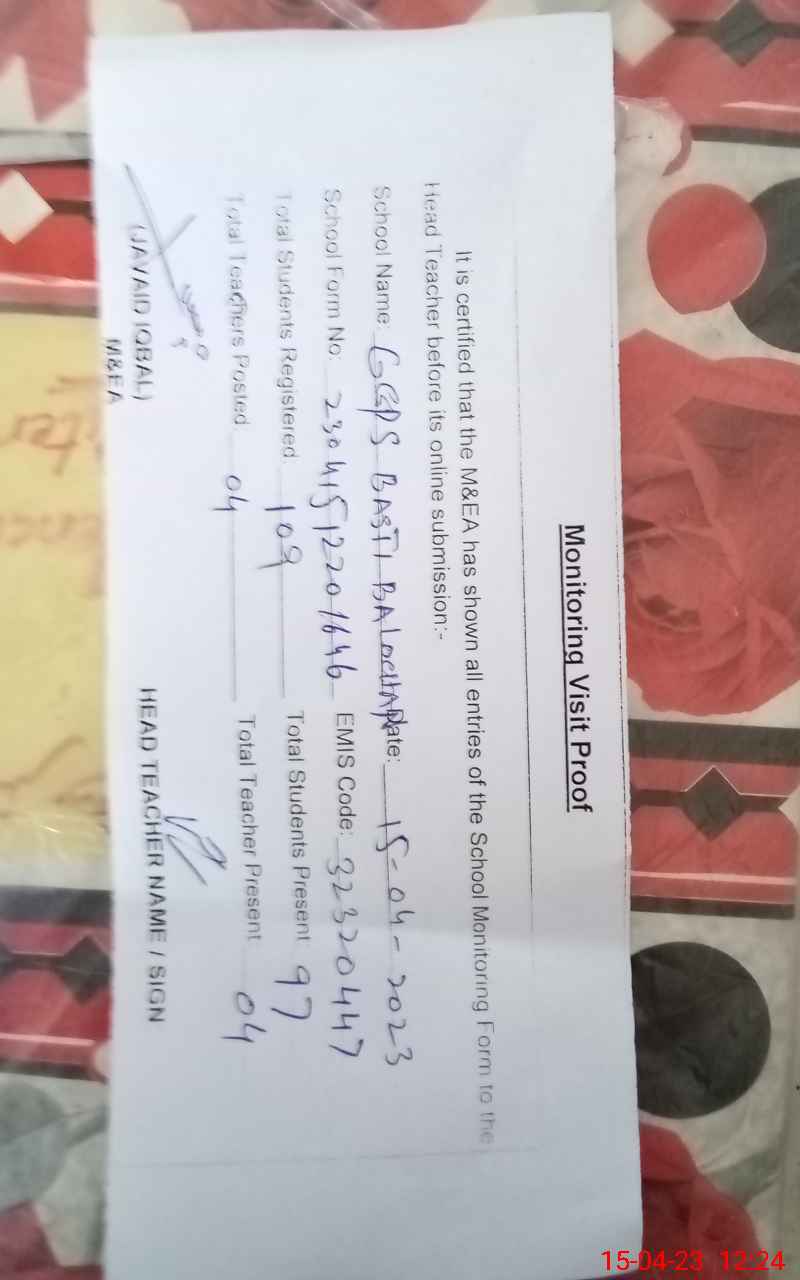 Monitoring Visit Proof
It is certified that the M&EA has shown all entries of the School Monitoring Form to the
Head Teacher before its online submission:-
School Name: GGPS BASTI BALOCHAN Date: 15-04-2023
School Form No: 230415122201646 EMIS Code: 32320447
Total Students Registered 109 Total Students Present 97
Total Teachers Posted 04 Total Teacher Present 04
(JAVAID IQBAL)
M&EA
HEAD TEACHER NAME / SIGN
15-04-23 12:24